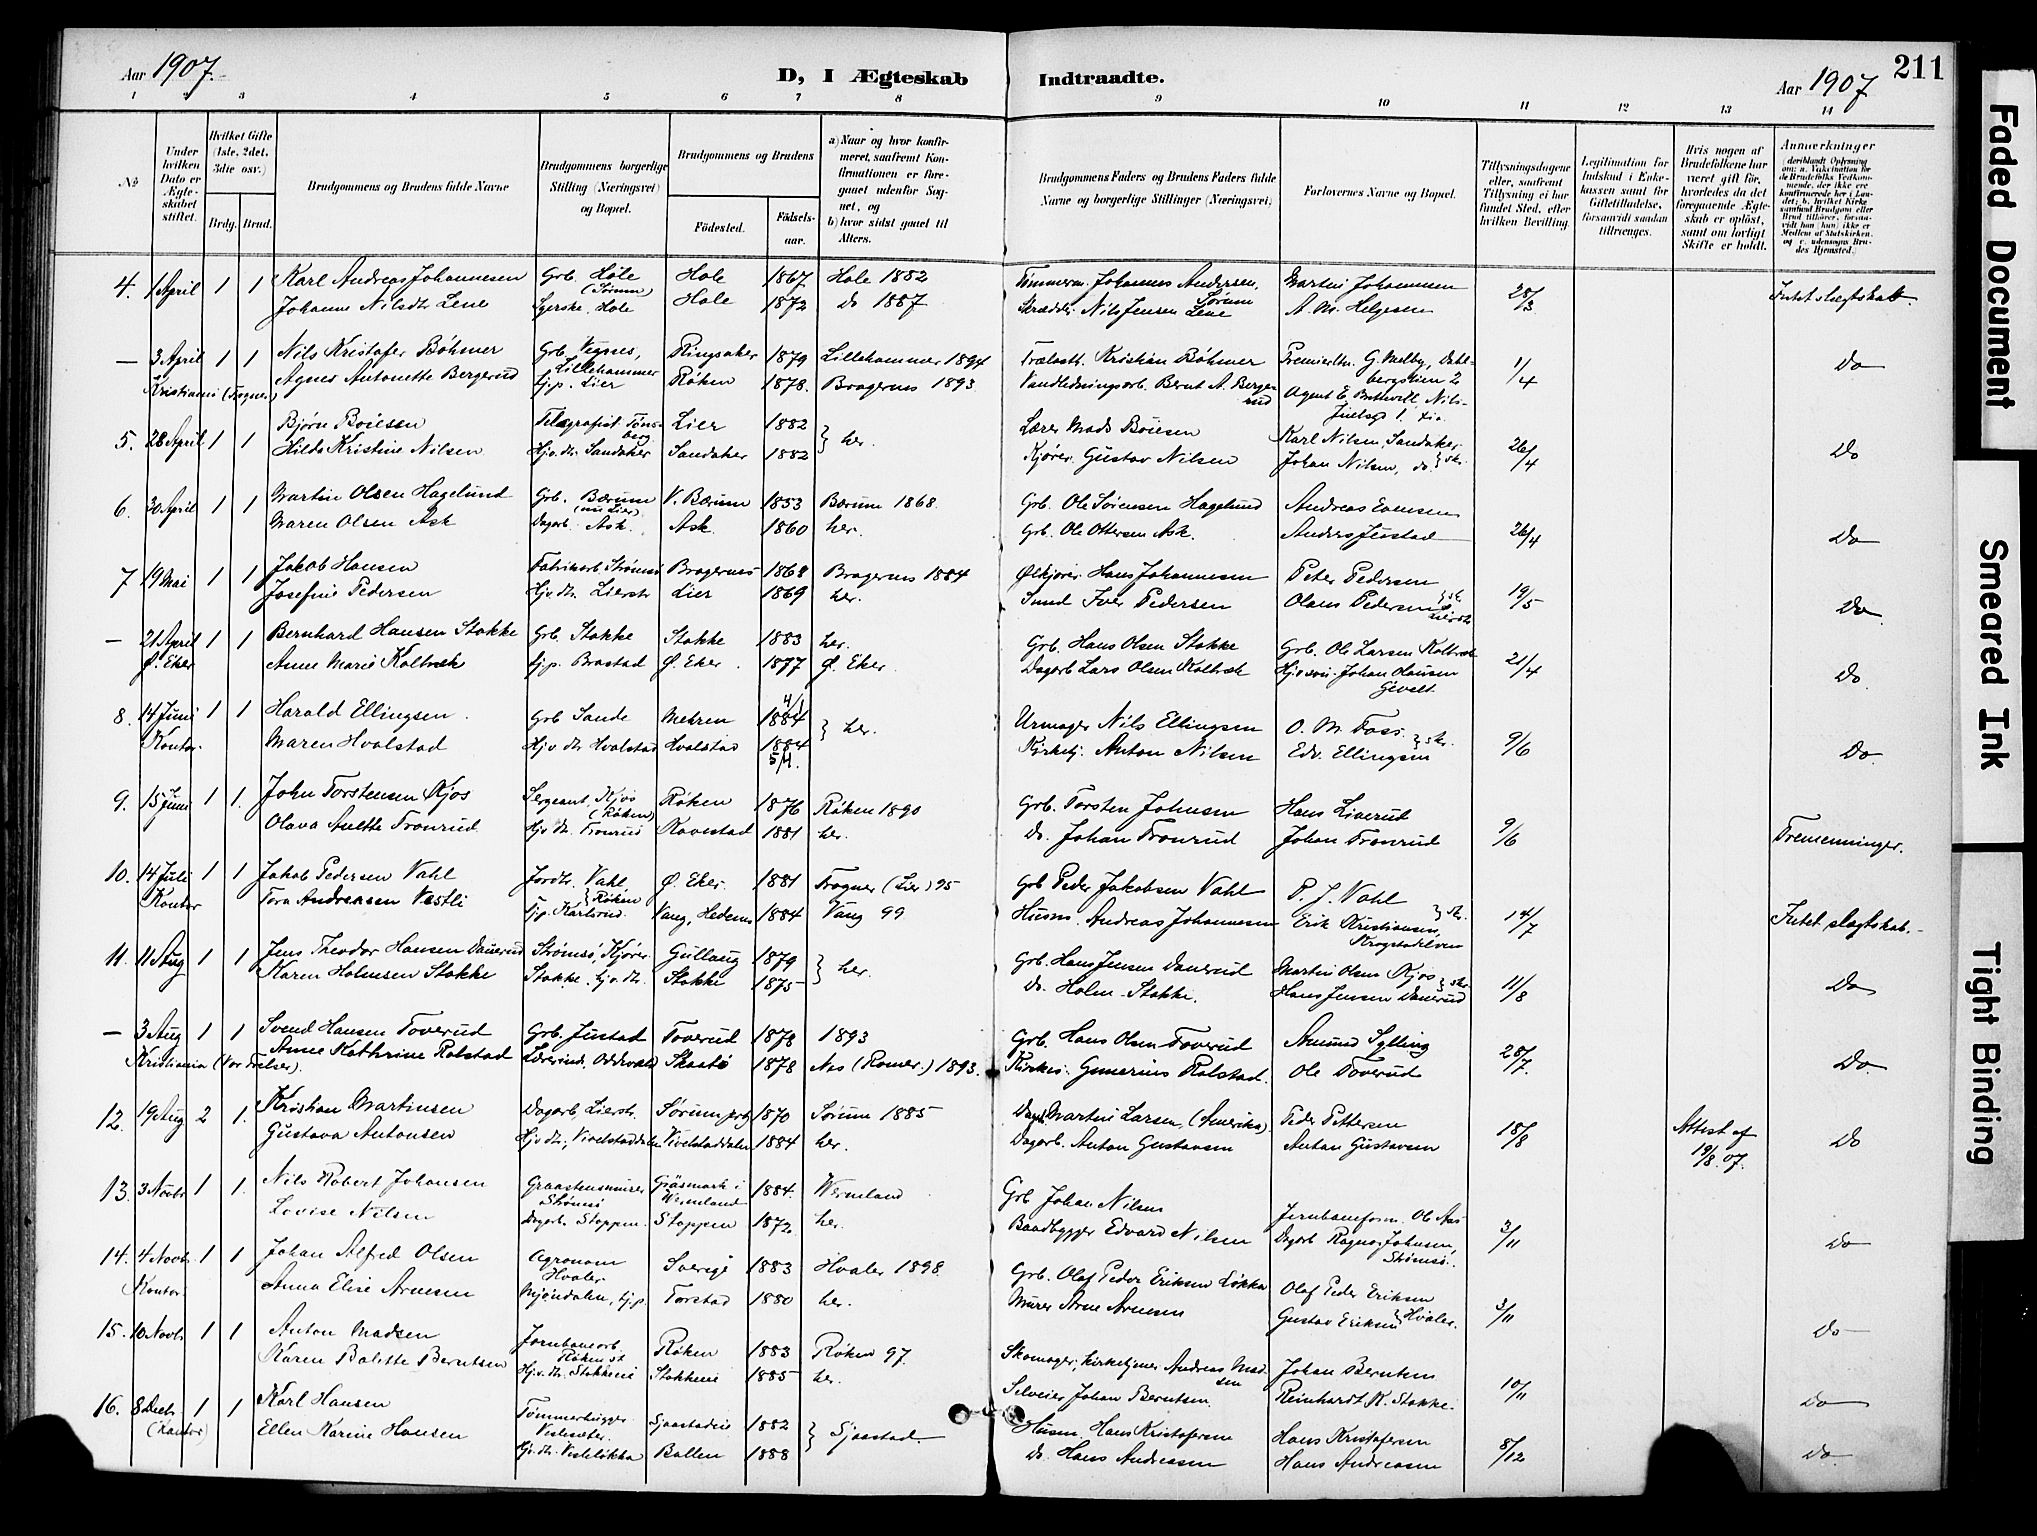 Aar 1907.
D, I Ægteskab Indtraadte.
Aar 1907
211
1 2 3 4 5 6 7 8 9 10 11 12 13 14
№
Under hvilken Dato er Ægteskabet stiftet.
Hvilket Gifte (1ste, 2det, 3die osv.)
Brdg. Brud.
Brudgommens og Brudens fulde Navne
Brudgommens borgerlige Stilling (Næringsvei) og Bopæl.
Brudgommens og Brudens
Fødested.
Fødselsaar.
a) Naar og hvor konfirmeret, saafremt Konfirmationen er foregaaet udenfor Sognet, og
b) hvor sidst gaaet til Alters.
Brudgommens Faders og Brudens Faders fulde Navne og borgerlige Stillinger (Næringsvei)
Forlovernes Navne og Bopæl.
Tillysningsdagene eller, saafremt Tillysning ei har fundet Sted, efter hvilken Bevilling.
Legitimation for Indskud i Enkekassen samt for Giftetilladelse, forsaavidt saadan tiltrænges.
Hvis nogen af Brudefolkene har været gift før, hvorledes da det foregaaende Ægteskab er opløst, samt om lovligt Skifte er holdt.
Anmærkninger
4. 1 April 1 1 Karl Andreas Johannesen Grb. Hole (Sørum) Hole 1867 Hole 1882 Tømmerm. Johannes Andersen, Sørum Martin Johannesen 28/3 Intet slægtskab.
Johanne Nilsdtr Lene Syerske, Hole Hole 1872 do 1887 Skrædder Nils Jensen Lene A. M. Helgesen
— 3 April 1 1 Nils Kristofer Bøhmer Grb. Lillehammer Ringsaker 1879 Lillehammer 1894 Kristian Bøhmer G. Melby, 1/4 Do
Kristiania (Fagner) Agnes Antonette Bergerud tj.p. Lier Røken 1878. Bragernes 1893 Vandledningsarb. Bernt A. Bergerud Agent E.
5. 28 April 1 1 Bjørn Boiesen Telegrafist Tønsberg Lier 1882 } her. Lærer Mads Boiesen Karl Nilsen, Sandaker 26/4 Do
Hilda Kristine Nilsen Hjv. dtr. Sandaker Sandaker 1882 Kjører. Gustav Nilsen Johan Nilsen, do. } skr.
6. 30 April 1 1 Martin Olsen Hagelund Grb. Bærum (nu Lier) V. Bærum 1853 Bærum 1868. Grb. Ole Sørensen Hagelund Andreas Evensen 26/4 Do
Maren Olsen Ask Dagarb. Ask. Ask. 1860 her. Grb. Ole Ottersen Ask. Anders Justad
7 19 Mai 1 1 Jakob Hansen Fabrikarb. Strømsø Bragernes 1868 Bragernes 1884 Ølkjører. Hans Johannesen Peter Pedersen 19/5 Do
Josefine Pedersen Hjv. dtr. Lierstr. Lier 1869 her. Smed Iver Pedersen Olaus Pedersen } skr. Lierstr.
— 21 April 1 1 Bernhard Hansen Stokke Grb. Stokke Stokke 1883 her. Grb. Hans Olsen Stokke Grb. Ole Larsen Koltræk 21/4 Do
Ø. Eker Anne Marie Koltræk tj.p. Brastad Ø. Eker 1877 Ø. Eker. Dagarb Lars Olsen Koltræk Hjv. søn Johan Hansen
8. 14 Juni 1 1 Harald Ellingsen. Grb Sande Mehren 4/1 1884 } her. Urmager Nils Ellingsen O. M. Foss. } skr. 9/6 Do
Kontor. Maren Hvalstad Hjv. dtr. Hvalstad Hvalstad 1884 Kirketj. Anton Nilsen Edv. Ellingsen
9. 15 Juni 1 1. John Torstensen Kjos Sergeant, Kjos (Røken) Røken 1876 Røken 1890 Grb. Torsten Johnsen Hans Liverud 9/6 Tremenninger.
Olava Anette Tronrud Hjv. dtr. Tronrud Ravestad 1881 her. Do. Johan Tronrud Johan Tronrud
10. 14 Juli 1 1 Jakob Pedersen Vahl Jordbr. Vahl, Røken Ø. Eker. 1881 Frogner (Lier) 95 Grb Peder Jakobsen Vahl P. J. Vahl } skr. 14/7 Intet slægtskab.
Kontor Tora Andreasen Vestli tj.p. Karlsrud. Vang, Hedem 1884 Vang 99 Husm. Andreas Johannesen Erik Kristiansen, Krogstadelven
11. 11 Aug 1 1 Jens Theodor Hansen Dauerud Strømsø, Kjører Gullaug 1879 } her. Grb. Hans Jensen Dauerud Martin Olsen Kjos } skr. 11/8 Do
Karen Holmsen Stokke Stokke. hjv. dtr. Stokke 1875 Do. Holm Stokke. Hans Jensen Dauerud
— 3 Aug 1 1 Svend Hansen Toverud Grb. Justad Toverud 1878 1893 Grb. Hans Olsen Toverud Amund Sylling 28/7. Do
Kristiania (Vor Frelser). Anne Kathrine Rolstad Lærerind. Skaatø 1878 Nes (Romer.) 1893. Gunerius Rolstad. Ole Toverud
12. 19 Aug 2 1. Kristian Martinsen Dagarb Lierstr. Sørum prg 1870 Sørum 1885 Martin Larsen, (Amerika) Peder Pettersen 18/8 Attest af 19/8. 07. Do
Gustava Antonsen Hjv dtr, Vivelstaddalen Vivelstaddalen 1884 her. Dagarb. Anton Gustavsen Anton Gustavsen
13. 3 Novbr 1 1. Nils Robert Johansen Graastensmurer Strømsø Gräsmark i Wermland 1884. Wermland Grb Johan Nilsen Jernbaneform. Ole Aas 3/11 Do
Lovise Nilsen Dagarb. Stoppen Stoppen 1872. her. Baadbygger Edvard Nilsen Dagarb Ragnar Johnsen, Strømsø.
14. 4 Novbr 1 1 Johan Alfred Olsen Agronom Hvaler Sverige 1883 Hvaler 1898. Grb. Olaf Peder Eriksen Løkka Olaf Peder Eriksen 3/11 Do
Kontor. Anna Elise Arnesen Mjøndalen, tj.p. Torstad 1880 her. Murer Arne Arnesen Gustav Eriksen } Hvaler.
15. 10 Novbr 1 1 Anton Madsen Jernbanearb. Røken st Røken 1883 Røken 97. Skomager, kirketjener Andreas Madsen Johan Berntsen 10/11 Do
Karen Balette Berntsen Hjv. dtr. Stokkeie Stokkeie 1885 her. Selveier Johan Berntsen. Reinhardt K. Stokke.
16. 8 Decbr. 1 1 Karl Hansen Tømmerhugger Sjaastadeie 1882 } Sjaastad. Husm. Hans Kristofersen Hans Kristofersen 8/12 Do.
(Kontor) Ellen Karine Hansen hjv. dtr. Vesleløkka Ballen 1888 Do. Hans Andreasen Hans Andreasen
Faded Document
Smeared Ink
Tight Binding